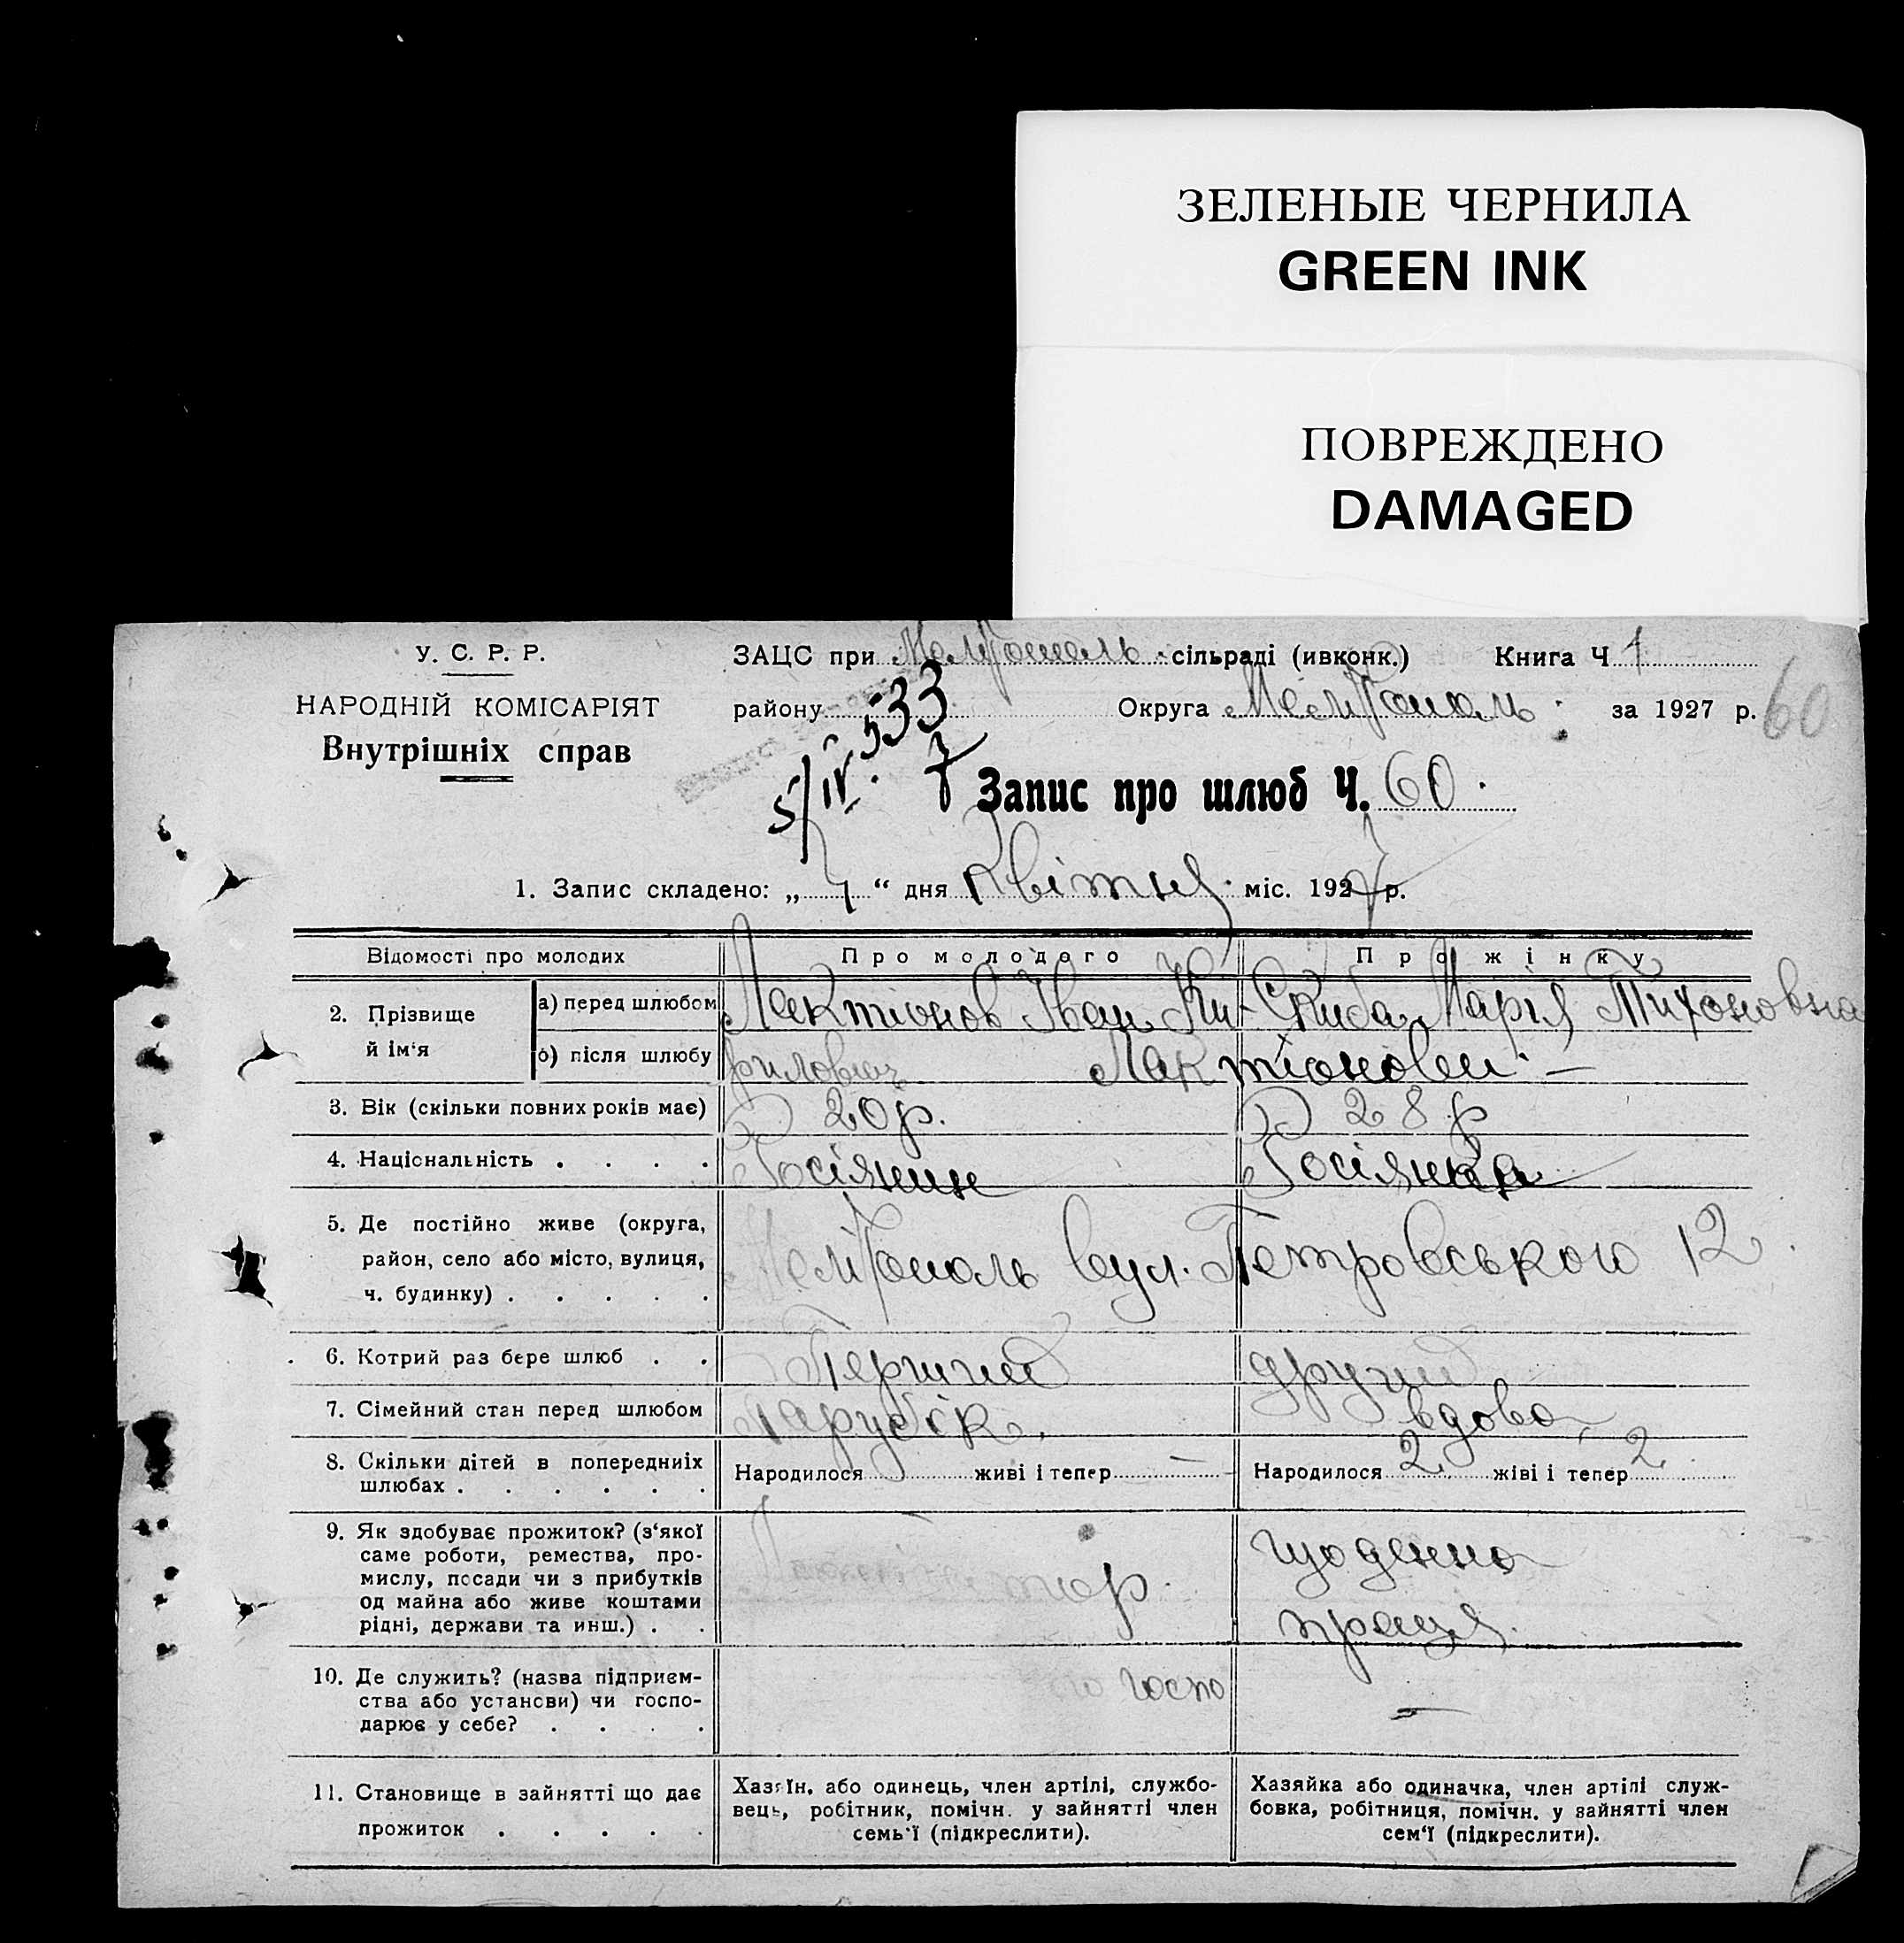 ЗЕЛЕНЫЕ ЧЕРНИЛА
GREEN INK
ПОВРЕЖДЕНО
DAMAGED
У. С. Р. Р.
НАРОДНІЙ КОМІСАРІЯТ
Внутрішніх справ
ЗАЦС при Мелітополь сільраді (ивконк.) Книга Ч 1
району Округа Мелітополь за 1927 р.
60
533
5/IV. 7
Запис про шлюб Ч. 60.
1. Запис складено: „ 4 “ дня Квітня міс. 1927 р.
Відомості про молодих Про молодого Про жінку
2. Прізвище й ім‘я
а) перед шлюбом Лактіонов Іван Ки- Скиба Марія Тихоновна
б) після шлюбу рилович Лактіонови. —
3. Вік (скільки повних років має) 20 р. 28 р
4. Національність . . . . Росіянин Росіянка
5. Де постійно живе (округа,
район, село або місто, вулиця,
ч. будинку) . . . . .
Мелітополь вул. Петровською 12.
6. Котрий раз бере шлюб . . Перший другий
7. Сімейний стан перед шлюбом Парубок. вдова
8. Скільки дітей в попередниіх
шлюбах . . . . . .
Народилося живі і тепер — Народилося 2 жіві і тепер 2
9. Як здобуває прожиток? (з‘якої
саме роботи, ремества, про-
мислу, посади чи з прибутків
од майна або живе коштами
рідні, держави та инш.) . .
щоденна
праця.
10. Де служить? (назва підприєм-
ства або установи) чи госпо-
дарює у себе? . . . .
госпо —
11. Становище в зайнятті що дає
прожиток . . . . .
Хазяїн, або одинець, член артілі, службо-
вець, робітник, помічн. у зайнятті член
семь‘ї (підкреслити).
Хазяйка або одиначка, член артілі служ-
бовка, робітниця, помічн. у зайнятті член
сем‘ї (підкреслити).